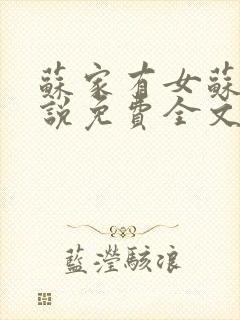 蘇家有女蘇
說免費全文
藍瀅駭浪